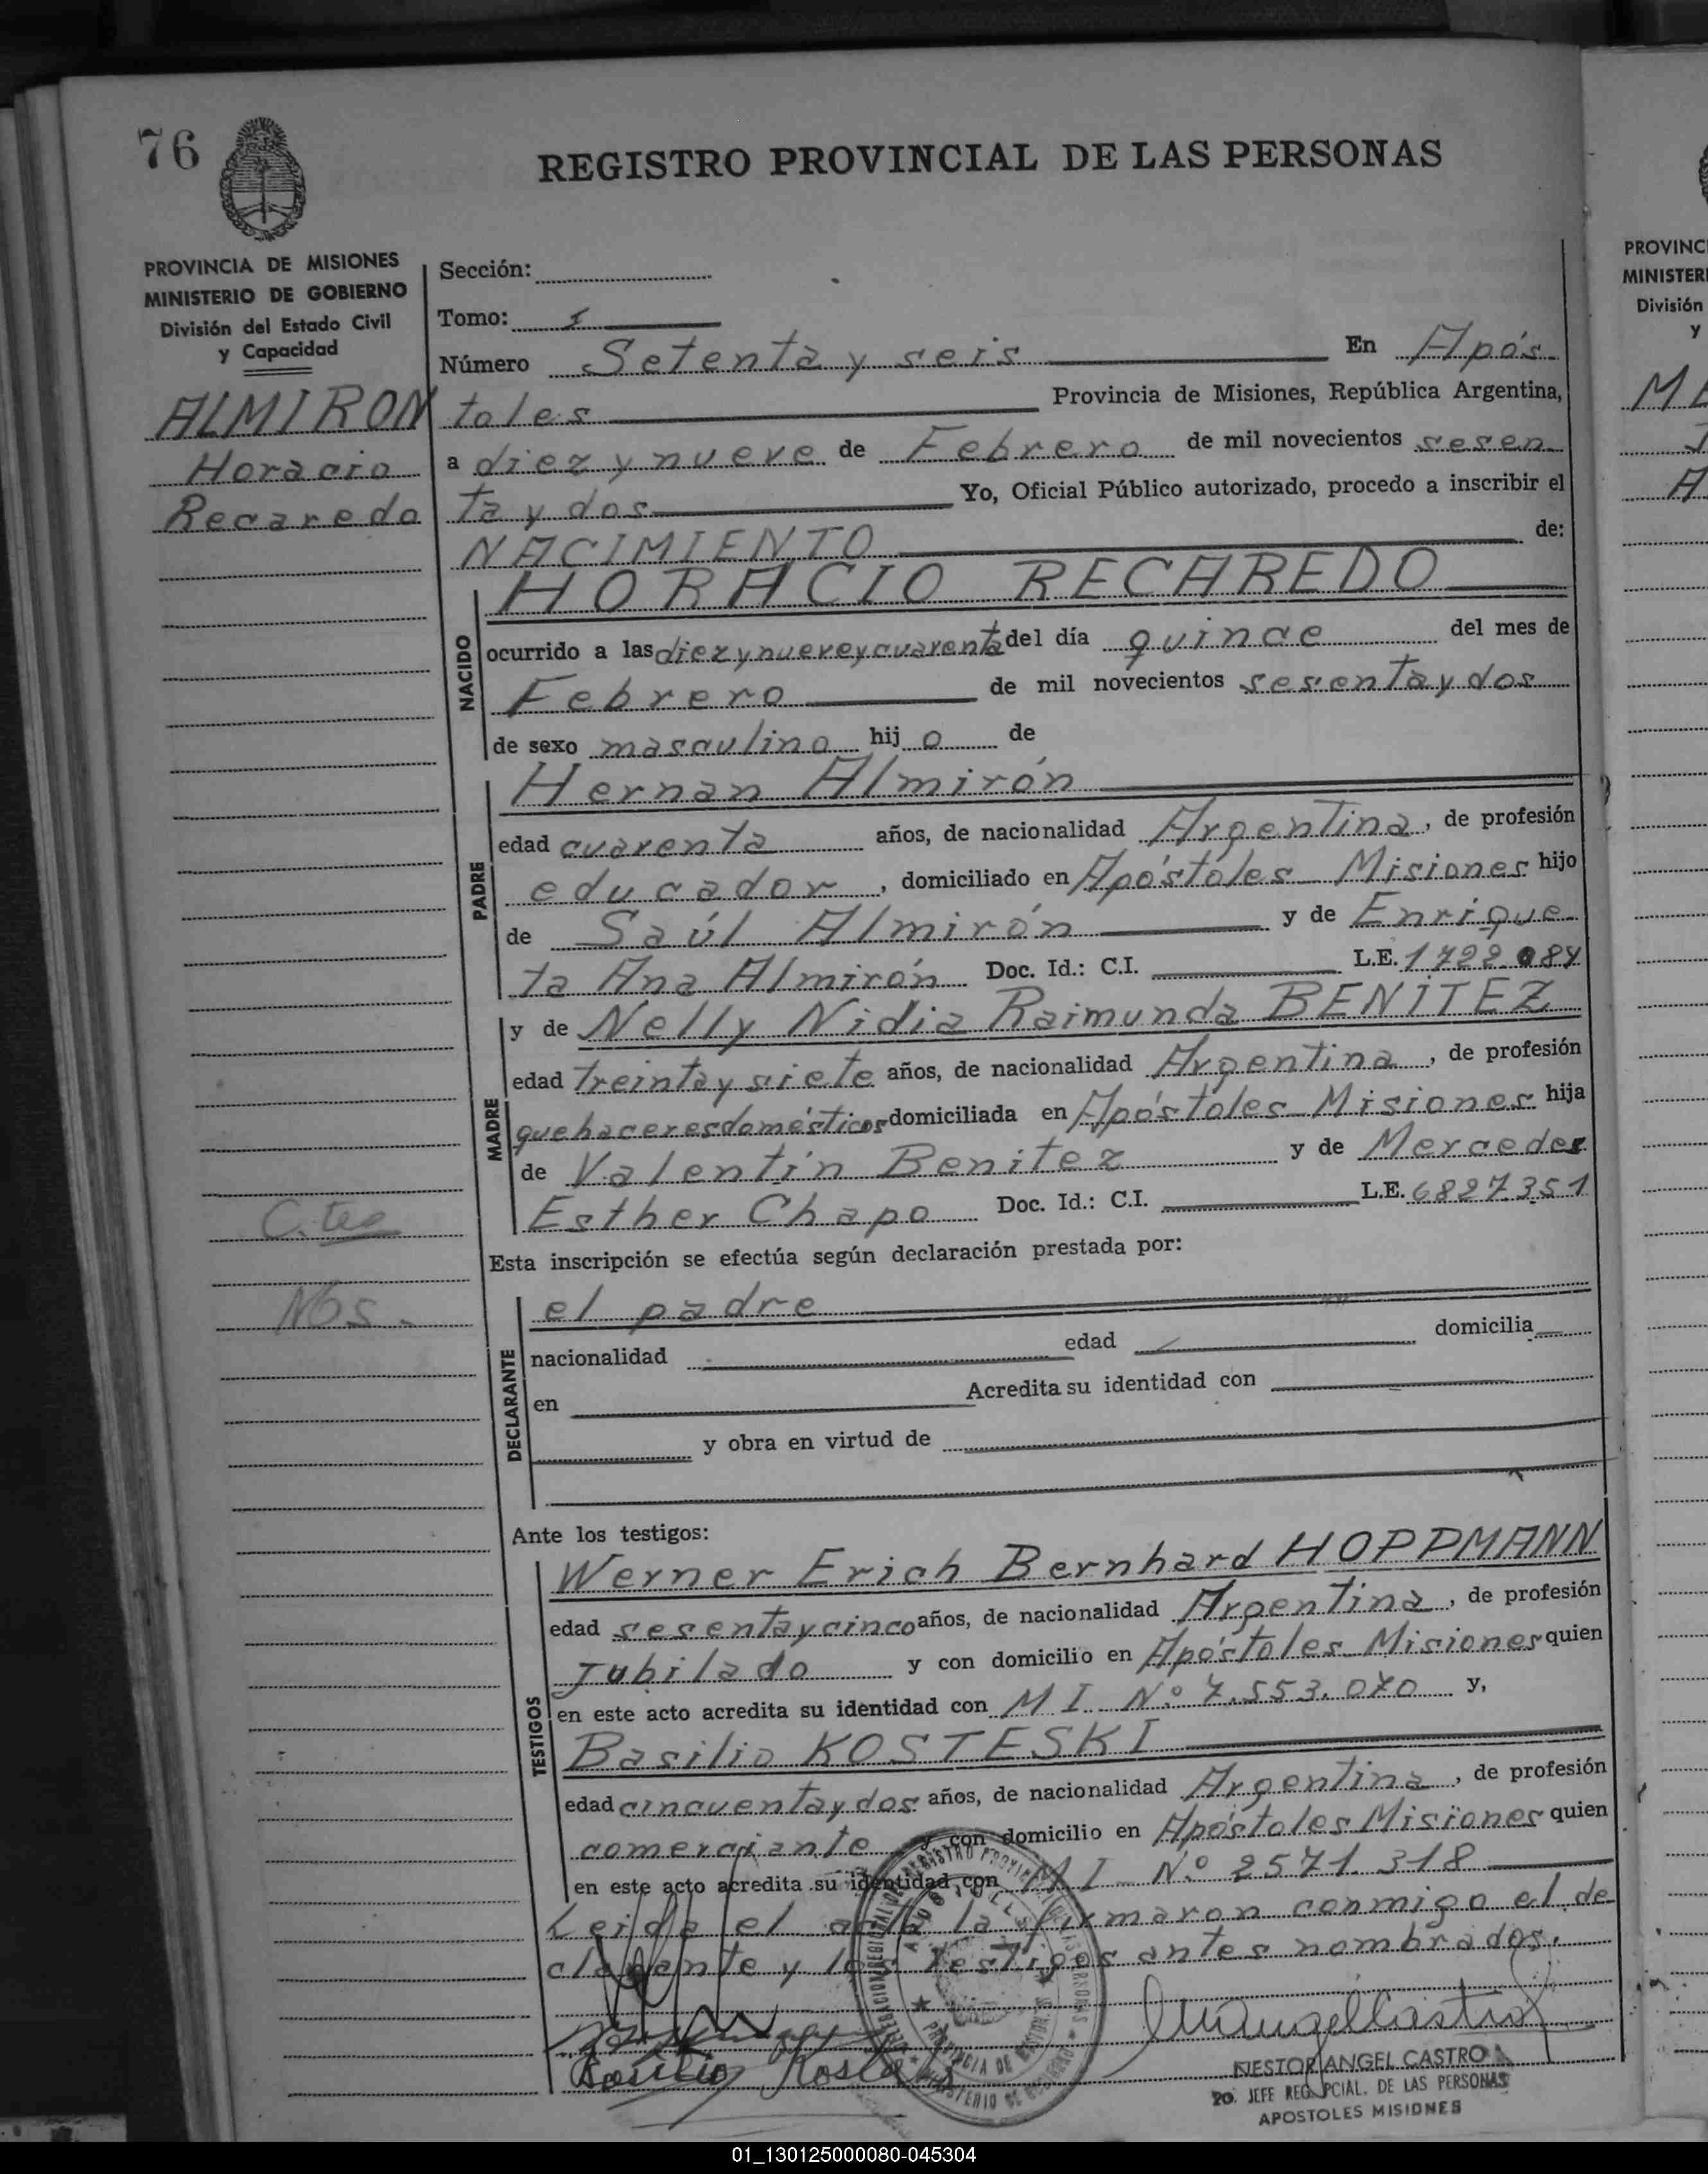 76
REGISTRO PROVINCIAL DE LAS PERSONAS
PROVINCIA DE MISIONES
MINISTERIO DE GOBIERNO
División del Estado Civil
y Capacidad
ALMIRON
Horacio
Recaredo
C. tea
Nos.
Sección:
Tomo: I
Número Setenta y seis En Após
toles Provincia de Misiones, República Argentina,
a diez y nueve de Febrero de mil novecientos sesen
ta y dos Yo, Oficial Público autorizado, procedo a inscribir el
NACIMIENTO de:
HORACIO RECAREDO
NACIDO
ocurrido a las diez y nueve y cuarenta del día quince del mes de
Febrero de mil novecientos sesenta y dos
de sexo masculino hij o de
Hernan Almirón
PADRE
edad cuarenta años, de nacionalidad Argentina, de profesión
educador, domiciliado en Apóstoles Misiones hijo
de Saúl Almirón y de Enrique
ta Ana Almirón Doc. Id.: C.I. L.E. 1722 084
y de Nelly Nidia Raimunda BENITEZ
MADRE
edad treinta y siete años, de nacionalidad Argentina, de profesión
quehaceres domésticos domiciliada en Apóstoles Misiones hija
de Valentín Benitez y de Mercedes
Esther Chapo Doc. Id.: C.I. L.E. 6827351
Esta inscripción se efectúa según declaración prestada por:
el padre
DECLARANTE
nacionalidad edad domicilia
en Acredita su identidad con
y obra en virtud de
Ante los testigos:
Werner Erich Bernhard HOPPMANN
TESTIGOS
edad sesenta y cinco años, de nacionalidad Argentina, de profesión
Jubilado y con domicilio en Apóstoles Misiones quien
en este acto acredita su identidad con M I Nº 7.553.070 y,
Basilio KOSTESKI
edad cincuenta y dos años, de nacionalidad Argentina, de profesión
comerciante y con domicilio en Apóstoles Misiones quien
en este acto acredita su identidad con M I Nº 2571.318
Leida el acta la firmaron conmigo el de
clarante y los testigos antes nombrados.
Basilio
NESTOR ANGEL CASTRO
2o. JEFE REG. PCIAL. DE LAS PERSONAS
APOSTOLES MISIONES
PROVINC
MINISTER
División
y
01_130125000080-045304